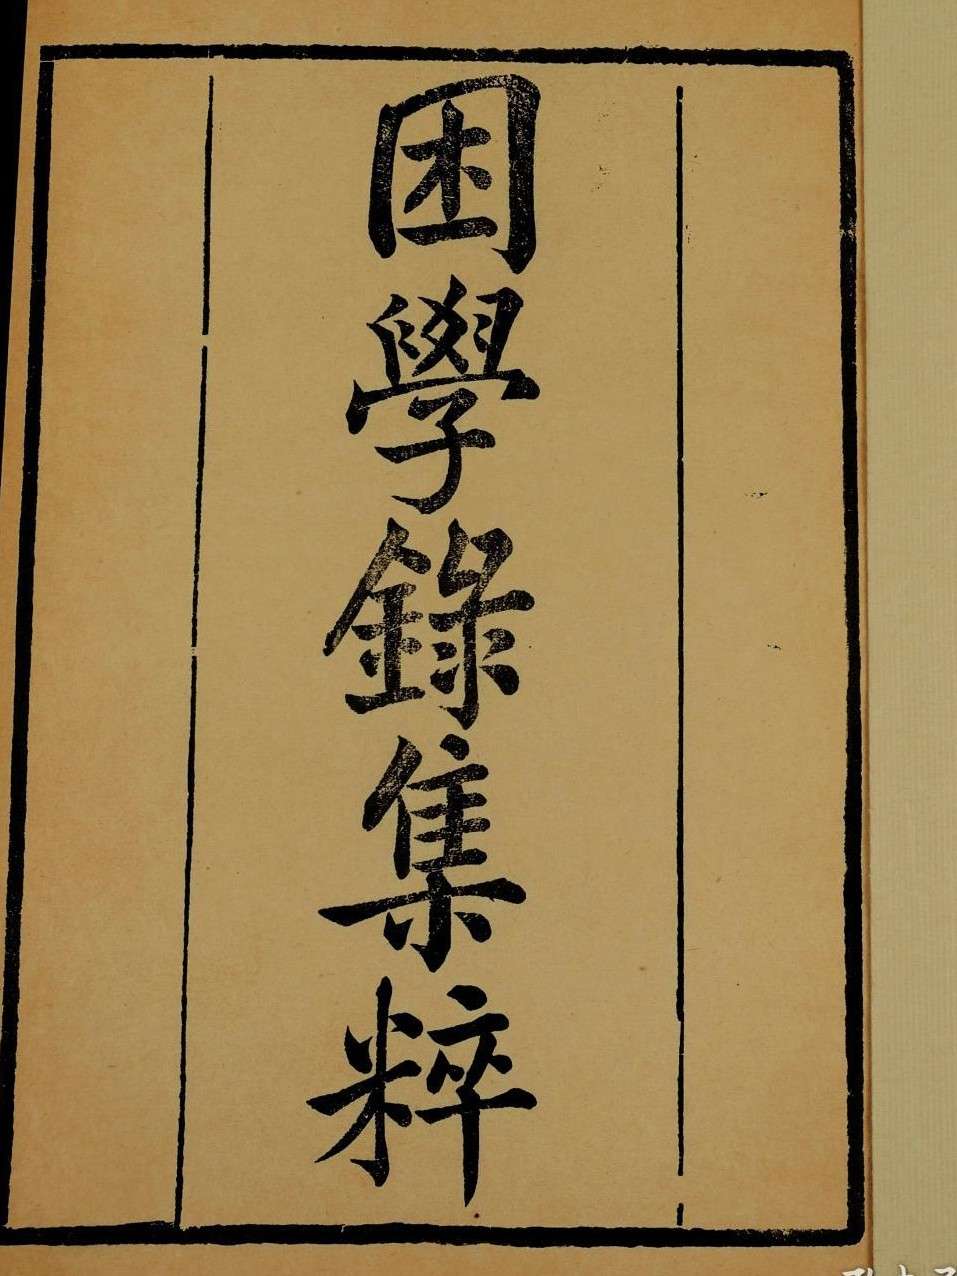 困學錄集粹